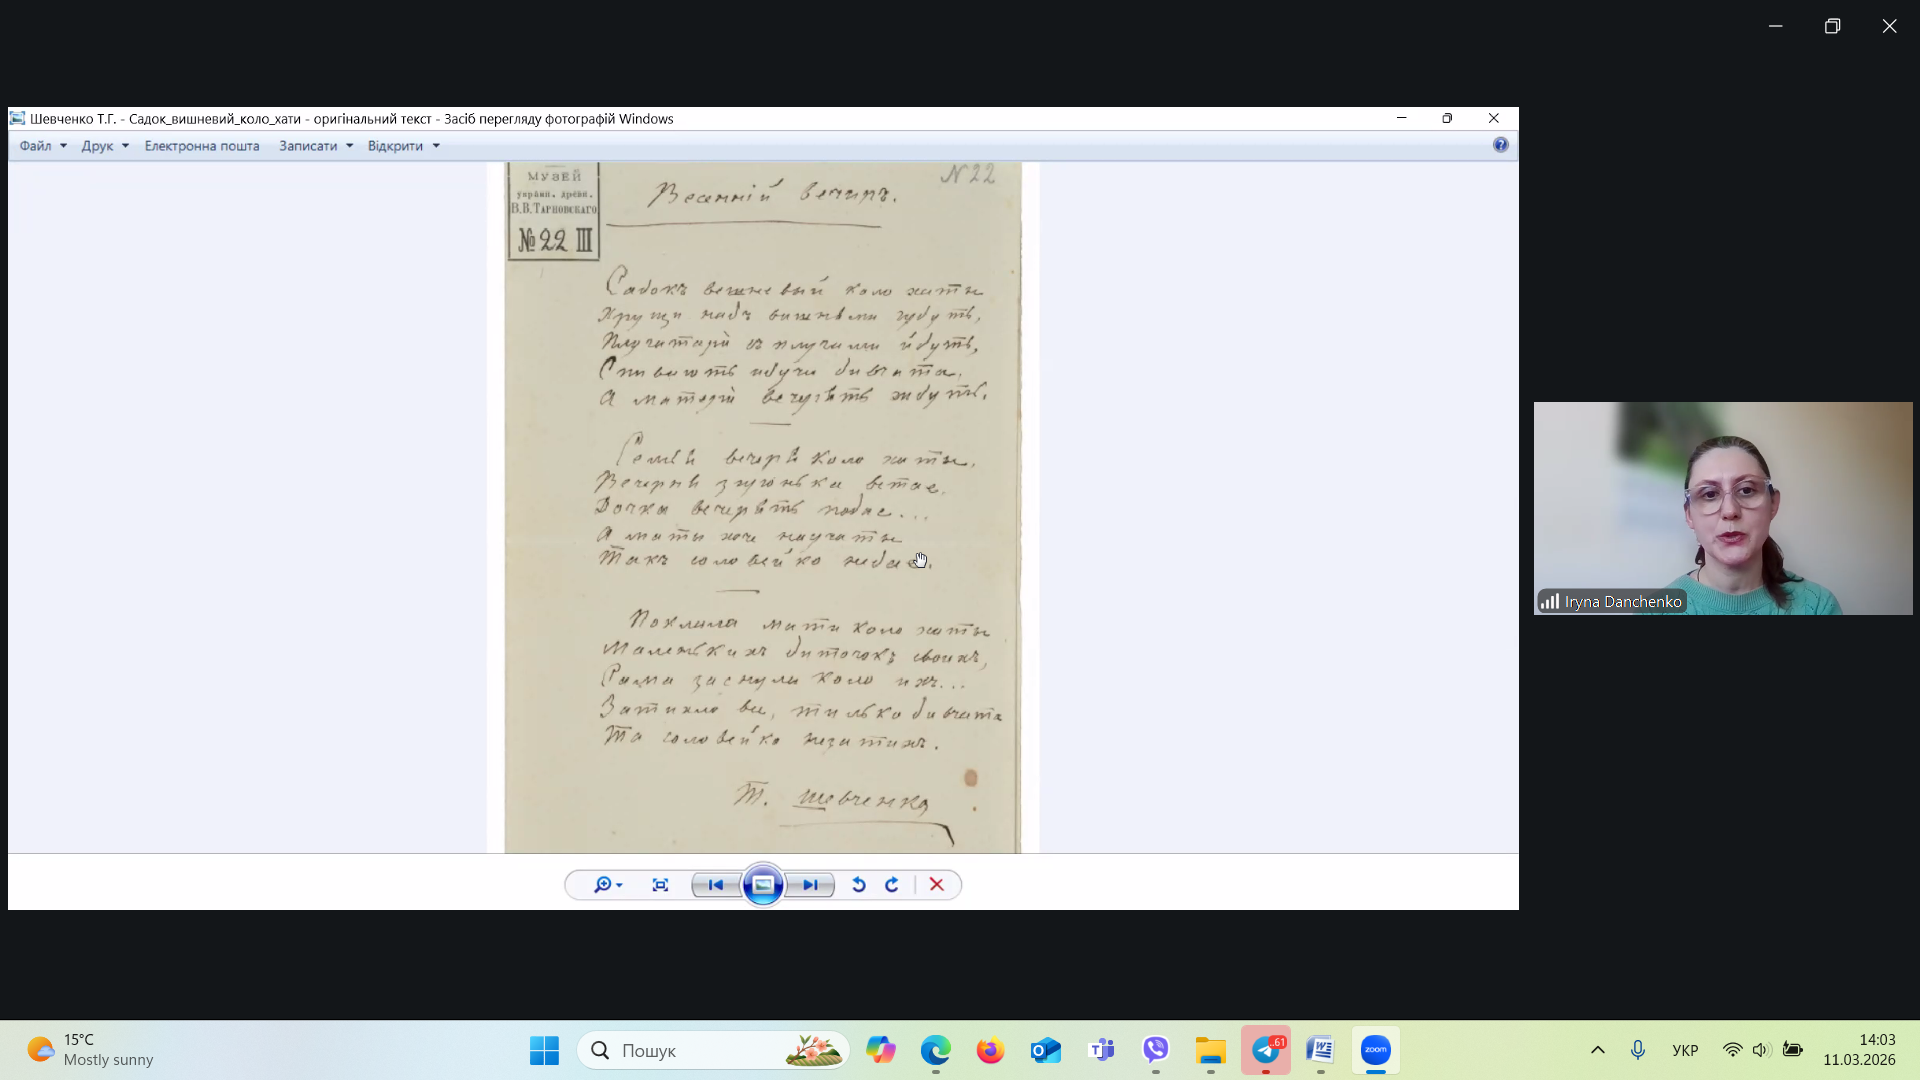 Шевченко Т.Г. - Садок_вишневий_коло_хати - оригінальний текст - Засіб перегляду фотографій Windows
Файл Друк Електронна пошта Записати Відкрити
МУЗЕЙ
украин. древн.
В.В.Тарновскаго
№ 22 III
N 22
Весенній вечиръ.
Садокъ вешневый коло хаты
Хрущи надъ вишнями гудуть,
Плугатари съ плугами йдуть,
Спивають идучи дивчата,
А матери вечерять ждуть.
Семья вечеря коло хаты,
Вечерня зиронька встае,
Дочка вечерять подае...
А маты хоче научаты
Такъ соловейко недае.
Поклала мати коло хаты
Маленькихъ диточокъ своихъ,
Сама заснула коло ихъ...
Затихло все, тилько дивчата
Та соловейко незатихъ.
Т. Шевченко
Iryna Danchenko
15°C
Mostly sunny
Пошук
61
zoom
УКР
14:03
11.03.2026